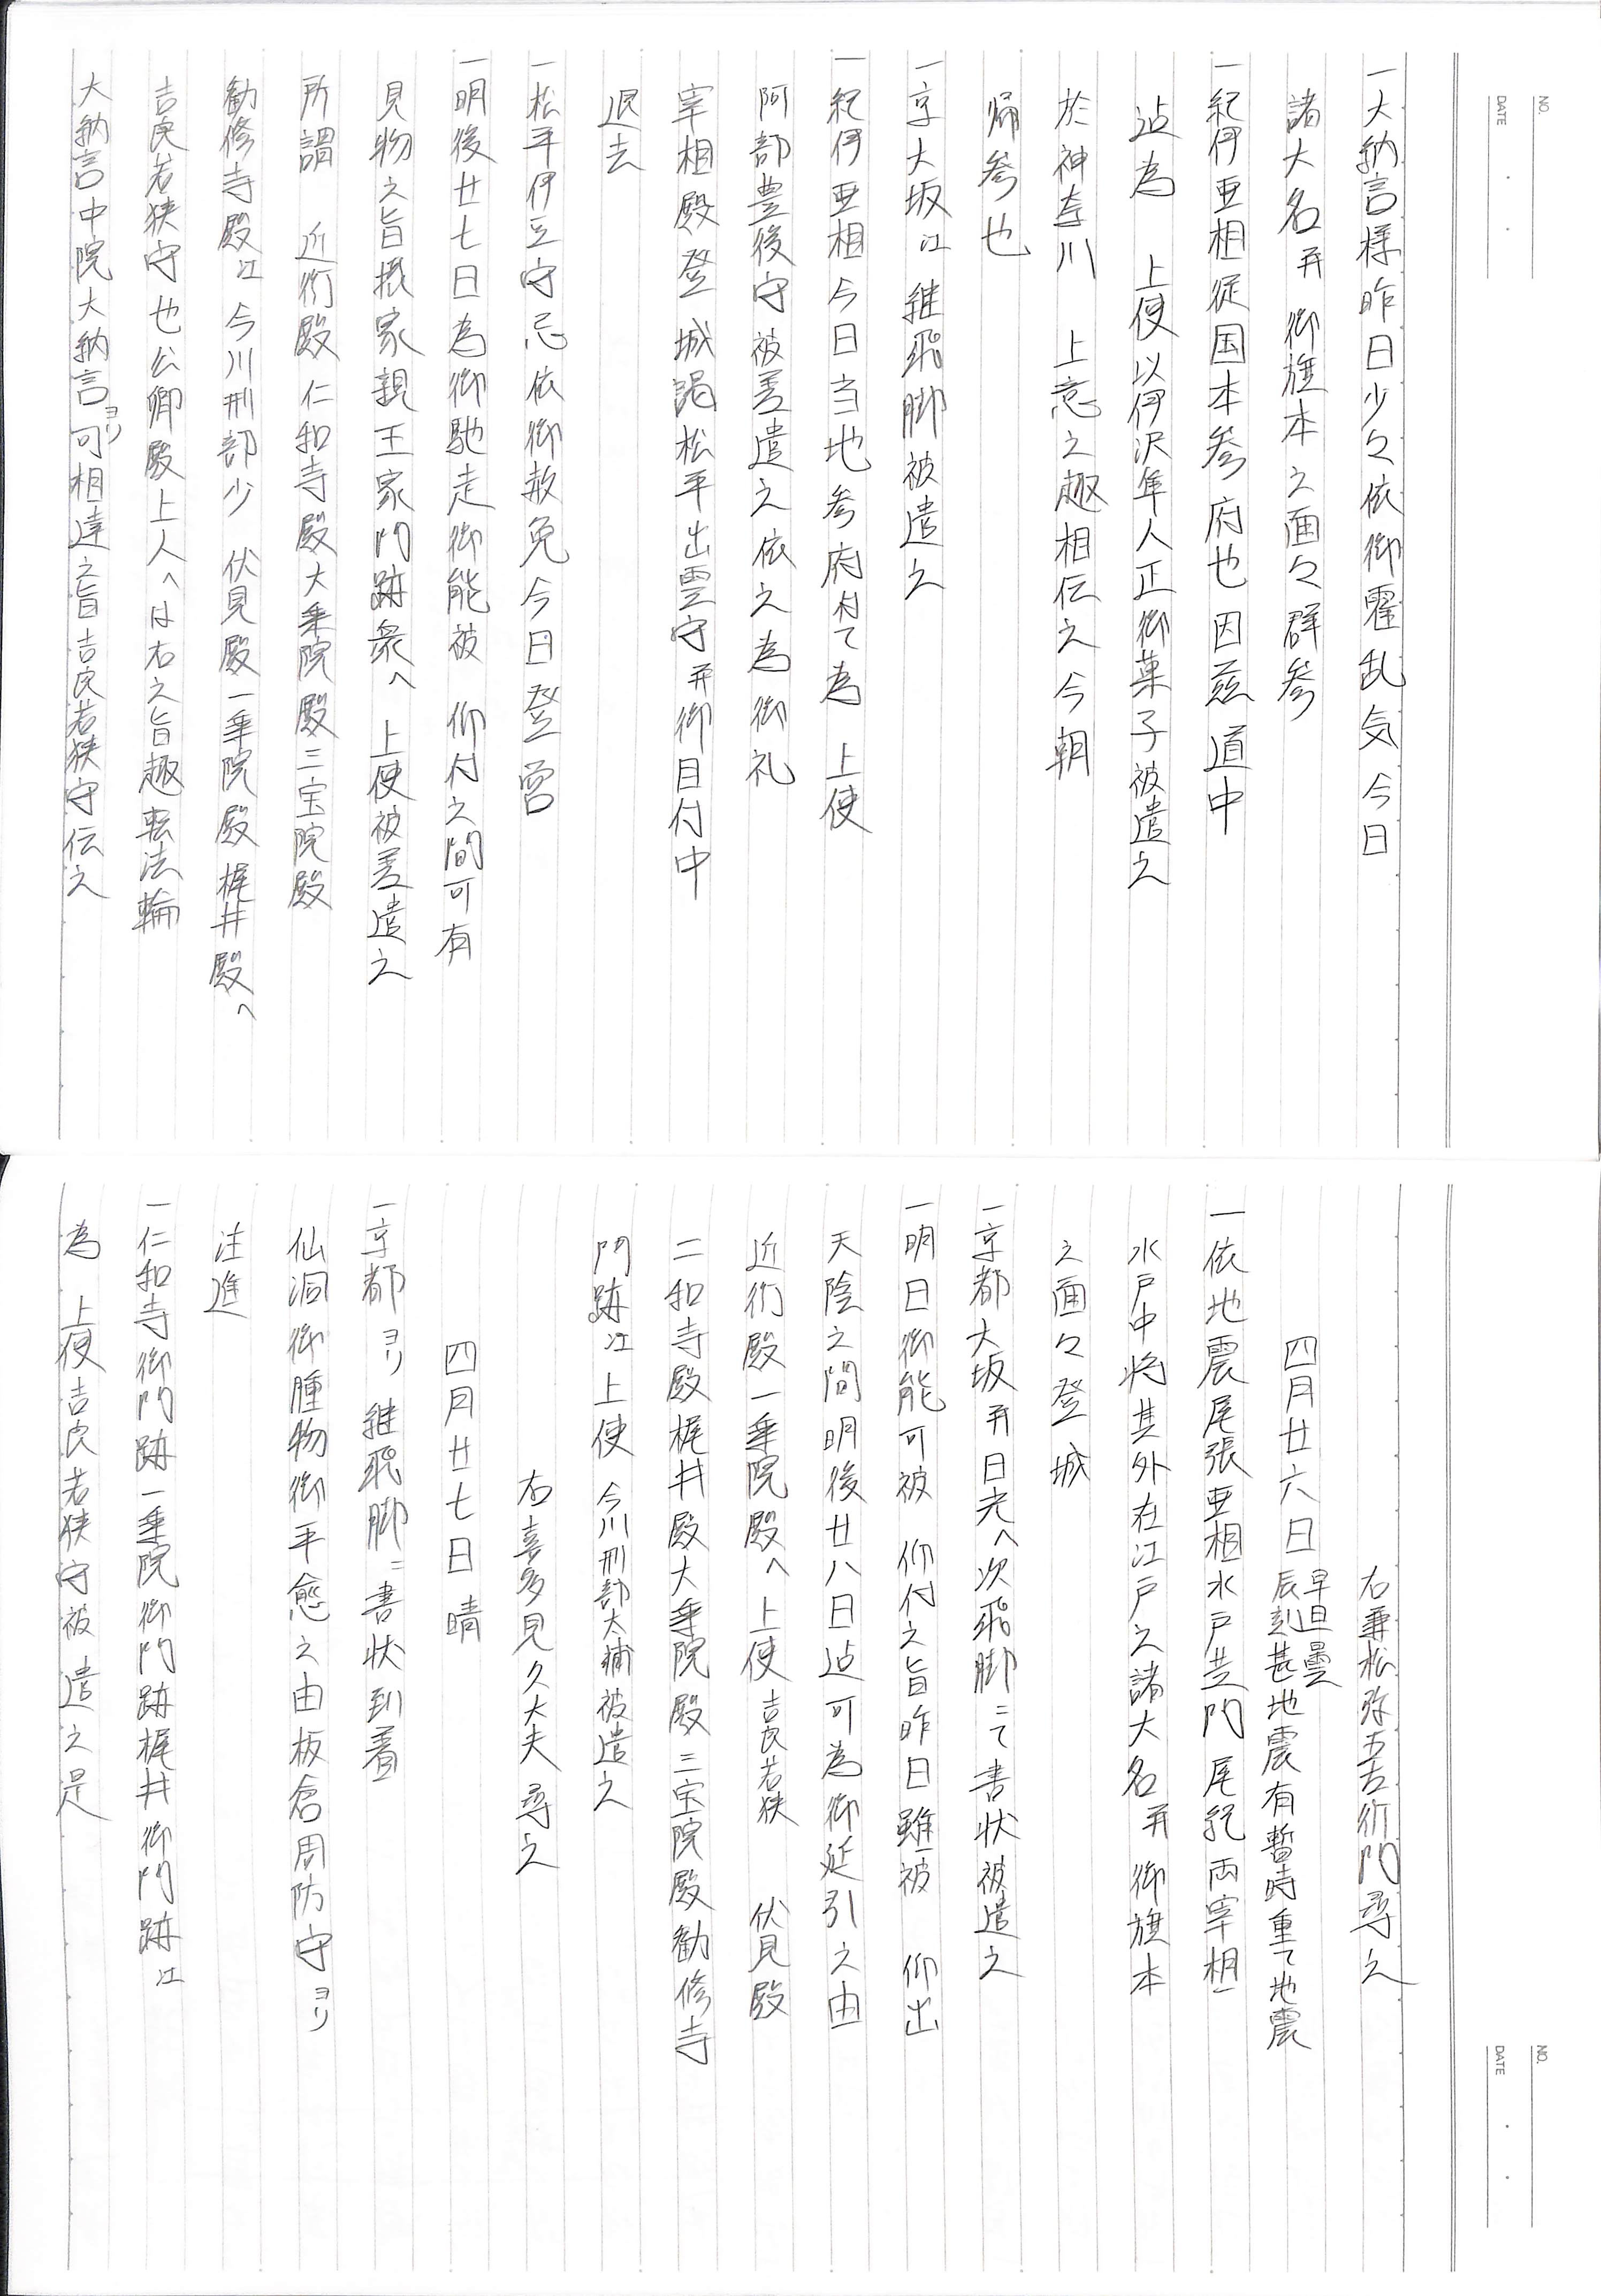 一大納言様昨日少々依御霍乱気今日
諸大名并御旗本之面々群参
一紀伊亜相従国本参府也因茲道中
迠為 上使以伊沢隼人正御菓子被遣之
於神奈川 上意之趣相伝之今朝
帰参也
一京大坂江継飛脚被遣之
一紀伊亜相今日当地参府付て為 上使
阿部豊後守被差遣之依之為御礼
宰相殿登城謁松平出雲守并御目付中
退去
一松平伊豆守忌依御赦免今日登営
一明後廿七日為御馳走御能被 仰付之間可有
見物之旨摂家親王家門跡衆へ 上使被差遣之
所謂 近衛殿仁和寺殿大乗院殿三宝院殿
勧修寺殿江今川刑部少 伏見殿一乗院殿梶井殿へ
吉良若狭守也公卿殿上人へは右之旨趣転法輪
大納言中院大納言ヨリ可相達之旨吉良若狭守伝之
右兼松弥五左衛門尋之
四月廿六日 早旦曇 辰刻甚地震有暫時重て地震
一依地震尾張亜相水戸黄門尾紀両宰相
水戸中将其外在江戸之諸大名并御旗本
之面々登城
一京都大坂并日光へ次飛脚ニて書状被遣之
一明日御能可被 仰付之旨昨日雖被 仰出
天陰之間明後廿八日迠可為御延引之由
近衛殿一乗院殿へ上使吉良若狭 伏見殿
二和寺殿梶井殿大乗院殿三宝院殿勧修寺
門跡江上使 今川刑部大輔被遣之
右喜多見久大夫尋之
四月廿七日 晴
一京都ヨリ継飛脚ニ書状到着
仙洞御腫物御平愈之由板倉周防守ヨリ
注進
一仁和寺御門跡一乗院御門跡梶井御門跡江
為 上使吉良若狭守被遣之是
NO.
DATE
NO.
DATE